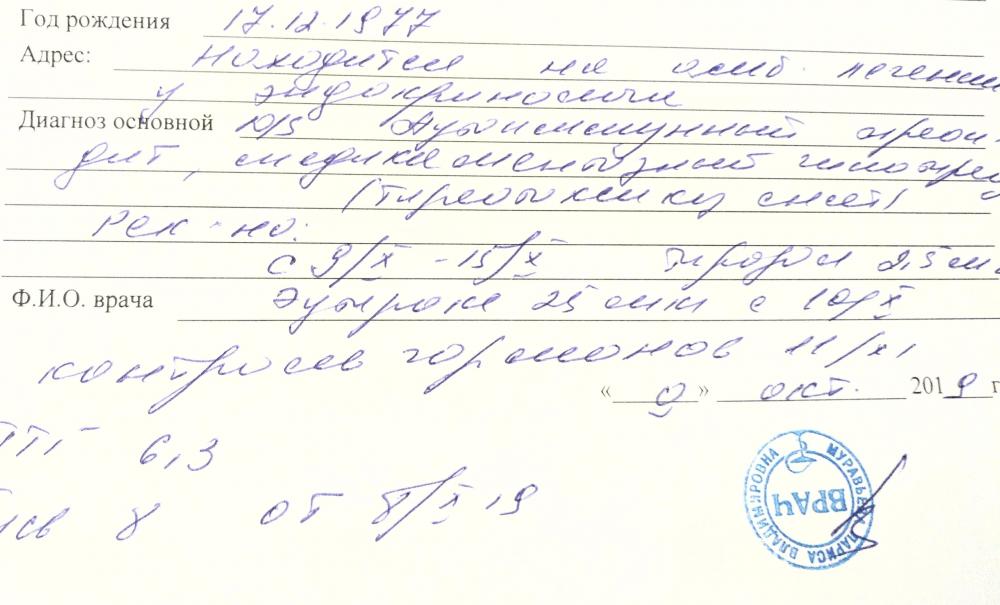 Год рождения 17.12.1977
Адрес: Находится на амб. лечении
у эндокринолога
Диагноз основной Аутоиммунный тиреои-
дит, медикаментозный гипотирео
(тиреотоксикоз снят)
Рек-но:
с 9/X - 15/X тирозол 2,5 м
Ф.И.О. врача Эутирокс 25 мкг с 10/X
контроль гормонов 11/XI
« 9 » окт. 2019 г
ТТГ 6,3
св 8 от 8/X 19
МУРАВЬЕВА ЛАРИСА ВЛАДИМИРОВНА
ВРАЧ